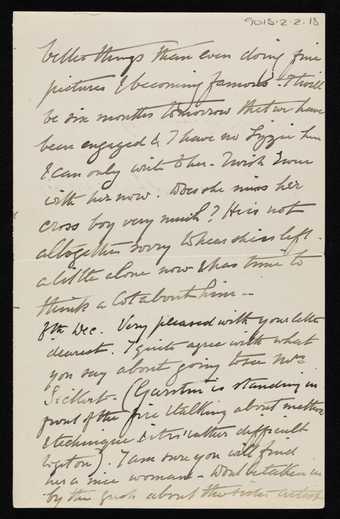 9015-2-2-13
better things than even doing fine
pictures & becoming famous. It will
be six months tomorrow that we have
been engaged & I have no Lizzie here
I can only write to her. I wish I were
with her now. Does she miss her
cross boy very much? He is not
altogether sorry to hear she is left
a little alone now & has time to
think a lot about him –
8th Dec. Very pleased with your letter
dearest. I quite agree with what
you say about going to see Mrs
Sickert. (Garstin is standing in
front of the fire & talking about matter
& technique & it is rather difficult
to go on). I am sure you will find
her a nice woman – Don't be taken in
by the gush about the sister artist